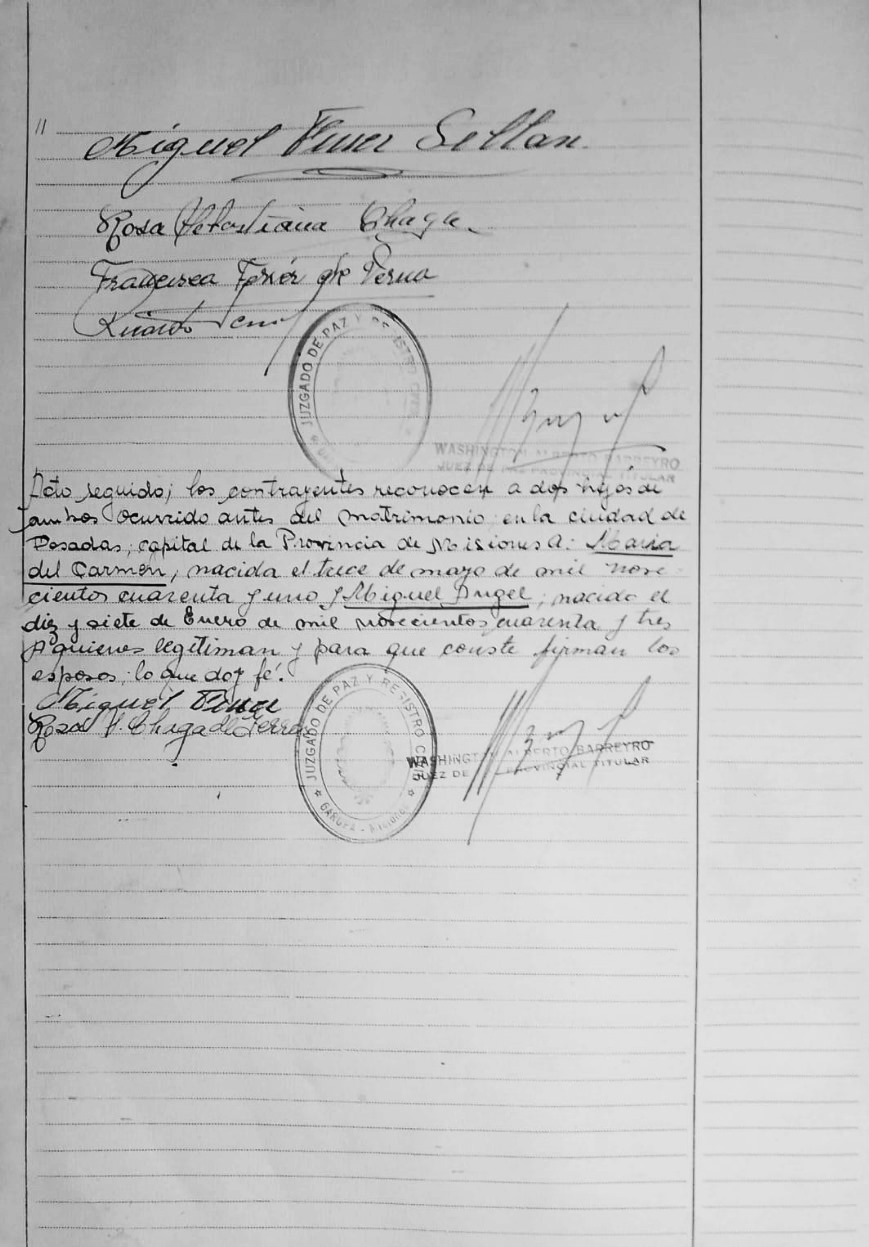 11
Miguel Ferrer Sellan.
Rosa Sebastiana Chaga
Francisca Ferrér de Perna
Ricardo
JUZGADO DE PAZ Y REGISTRO CIVIL
WASHINGTON ALBERTO BARREYRO
JUEZ DE PAZ PROVINCIAL TITULAR
Acto seguido; los contrayentes reconocen a dos hijos de
ambos ocurrido antes del matrimonio en la ciudad de
Posadas, capital de la Provincia de Misiones a: Maria
del Carmen, nacida el trece de mayo de mil nove-
cientos cuarenta y uno y Miguel Angel; nacido el
diez y siete de Enero de mil novecientos cuarenta y tres
A quienes legitiman y para que conste firman los
esposos; lo que doy fé.
Miguel Ferrer
Rosa S. Chaga de Ferrer
JUZGADO DE PAZ Y REGISTRO CIVIL
GARUPA - Misiones
WASHINGTON ALBERTO BARREYRO
JUEZ DE PROVINCIAL TITULAR